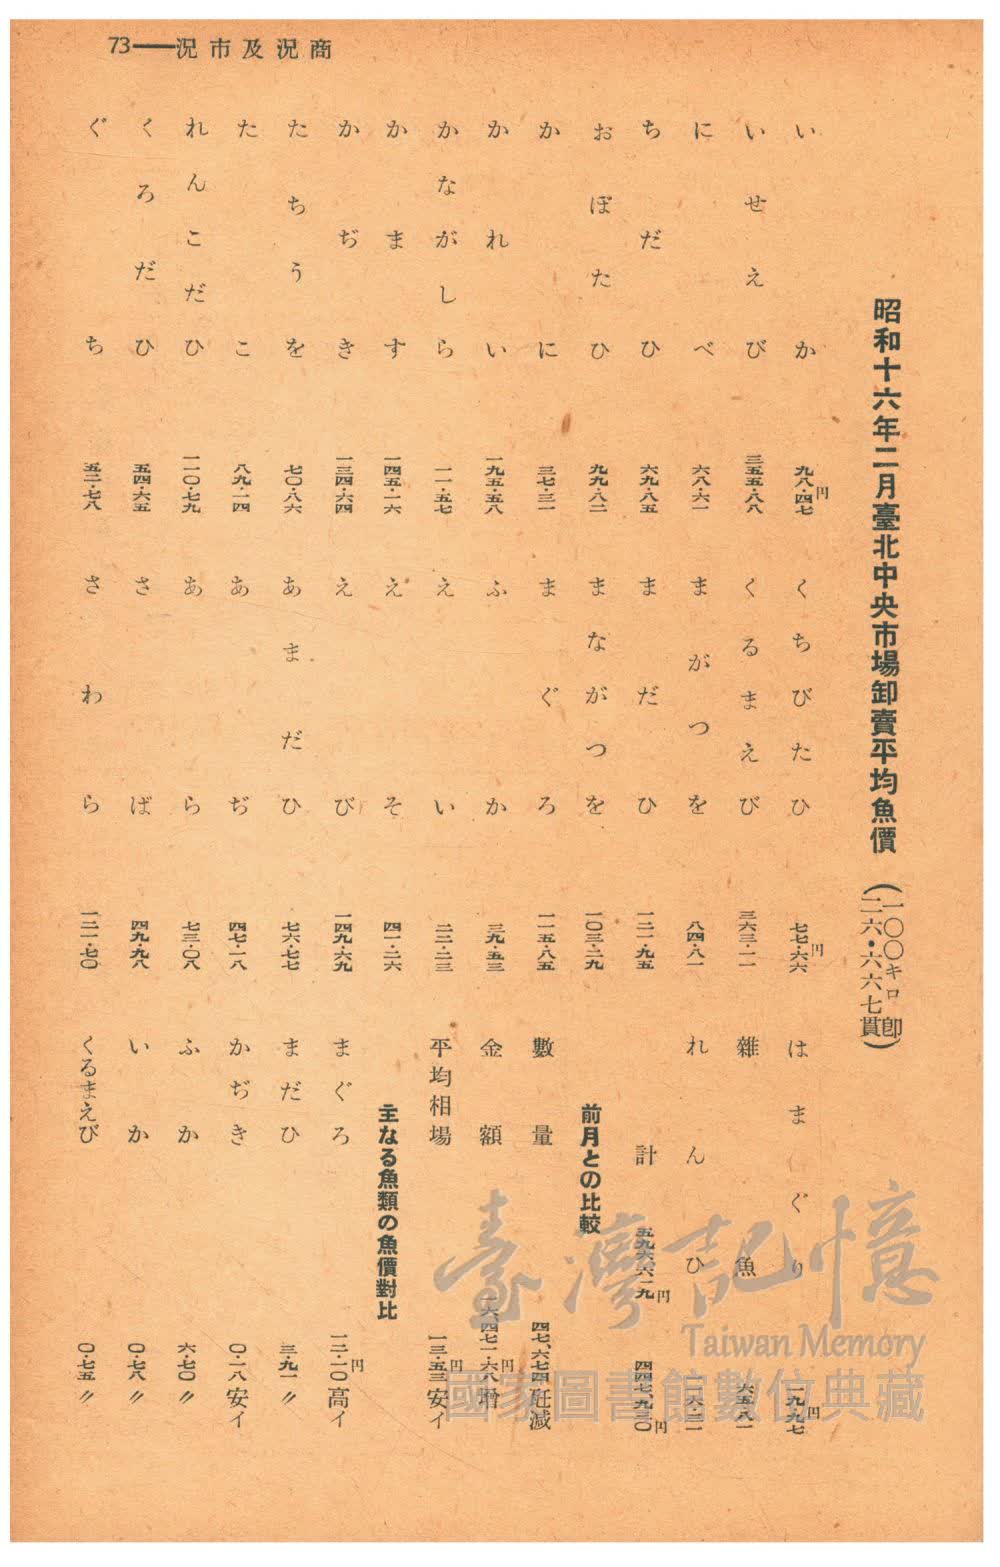 73——況市及況商
昭和十六年二月臺北中央市場卸賣平均魚價(一〇〇キロ卽二六・六六七貫)
いか 九八・四七円
いせえび 三五五・八八
にべ 六八・六一
ちだひ 六九・八五
おぼたひ 九九・八二
かに 三七・三一
かれい 一九五・五八
かながしら 一一・五七
かます 一四五・一六
かぢき 一三四・六四
たちうを 七〇・八六
たこ 八九・一四
れんこだひ 一一〇・七九
くろだひ 五四・六五
ぐち 五二・七八
くちびたひ 七七・六六円
くるまえび 三六三・一一
まがつを 八四・八一
まだひ 一二一・九五
まながつを 一〇三・二九
まぐろ 一一五・八五
ふか 三九・五三
えい 二二・二三
えそ 四一・二六
えび 一四九・六九
あまだひ 七六・七七
あぢ 四七・一八
あら 七三・〇八
さば 四九・九八
さわら 一二一・七〇
はまぐり 一九・九七円
雜魚 六五・八一
れんひ 一一六・二二
計 五九六、六一九円 四四七、九三〇円
前月との比較
數量 四七、六七四瓩減
金額 一六、四七一・六八円增
平均相場 一三・五三円安イ
主なる魚類の魚價對比
まぐろ 一二・一〇円高イ
まだひ 三・九一〃
かぢき 〇・一八安イ
ふか 六・七〇〃
いか 〇・七八〃
くるまえび 〇・七五〃
臺灣記憶
Taiwan Memory
國家圖書館數位典藏